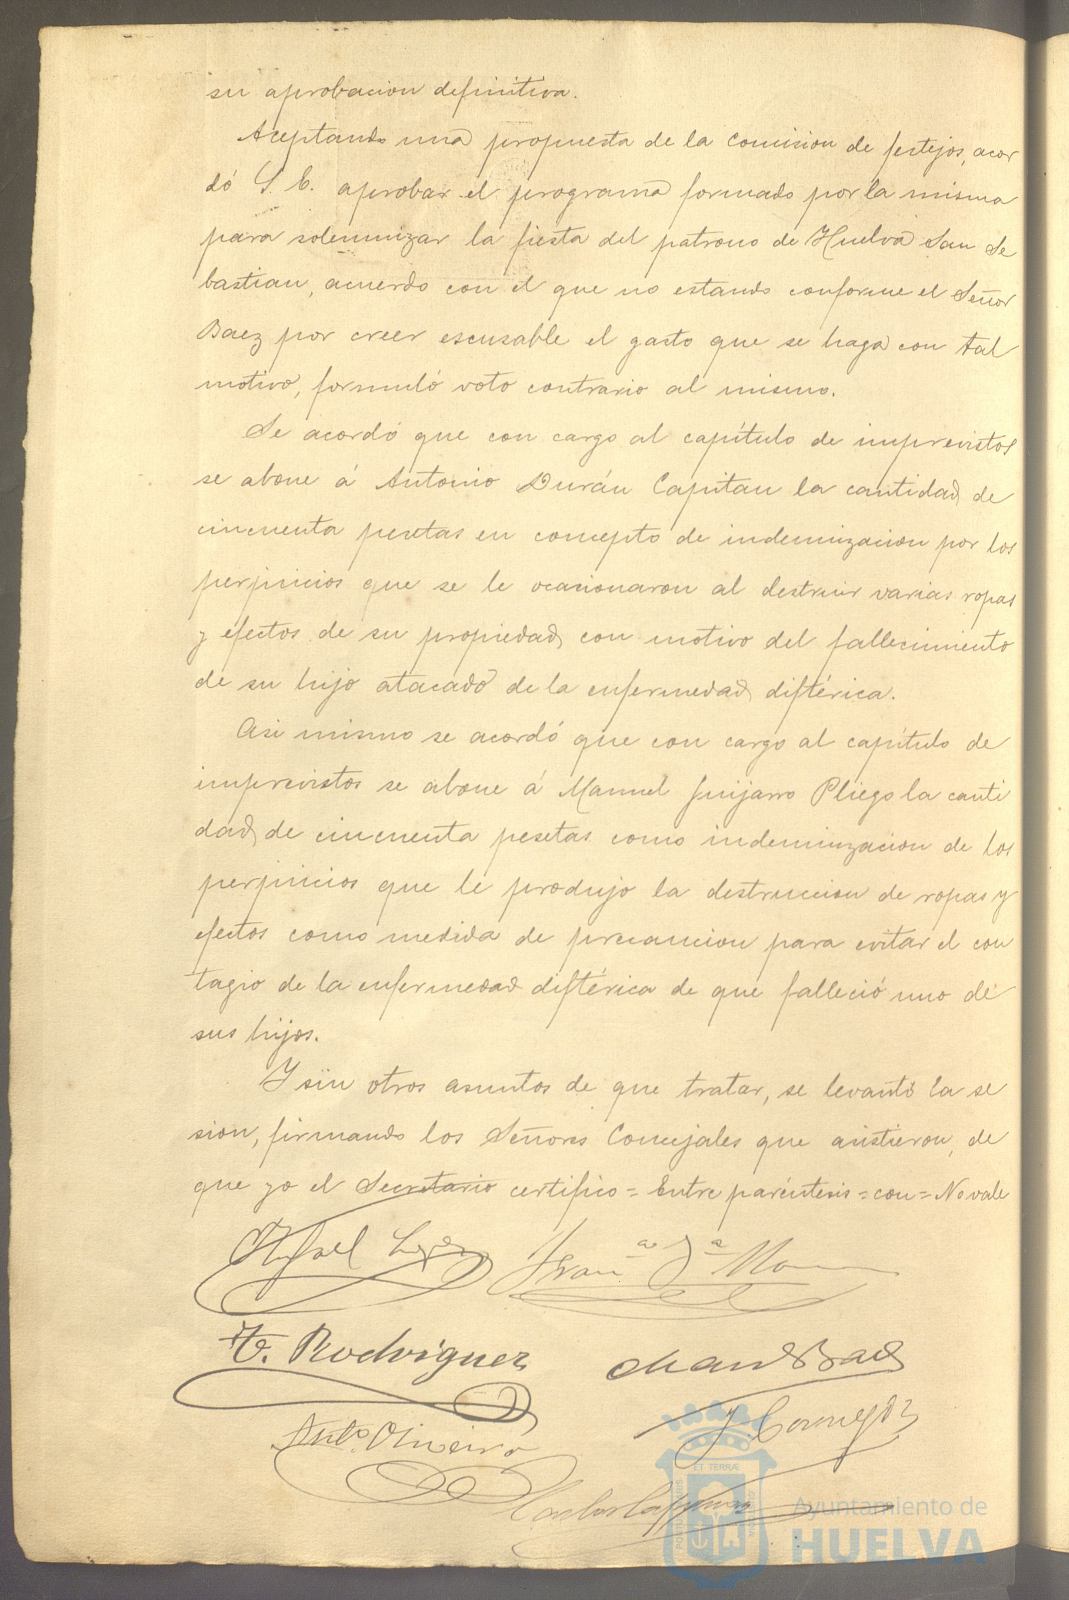 su aprobacion definitiva.
Aceptando una propuesta de la Comision de festejos, acor
dó S. E. aprobar el programa formado por la misma
para solemnizar la fiesta del patrono de Huelva San Se
bastian, acuerdo con el que no estando conforme el Señor
Baez por creer escusable el gasto que se haga con tal
motivo, formuló voto contrario al mismo.
Se acordó que con cargo al capítulo de imprevistos
se abone á Antonio Durán Capitan la cantidad de
cincuenta pesetas en concepto de indemnizacion por los
perjuicios que se le ocasionaron al destruir varias ropas
y efectos de su propiedad, con motivo del fallecimiento
de su hijo atacado de la enfermedad diftérica.
Asi mismo se acordó que con cargo al capítulo de
imprevistos se abone á Manuel Guijarro Pliego la canti
dad de cincuenta pesetas como indemnizacion de los
perjuicios que le produjo la destruccion de ropas y
efectos como medida de precaucion para evitar el con
tagio de la enfermedad diftérica de que falleció uno de
sus hijos.
Y sin otros asuntos de que tratar, se levantó la se
sion, firmando los Señores Concejales que asistieron, de
que yo el Secretario certifico = Entre paréntesis = con = No vale
Rafael Lopez
Fran.co
Rodriguez
Man.l Baez
Ant.o Oliveira
ET TERRÆ
Ayuntamiento de
HUELVA